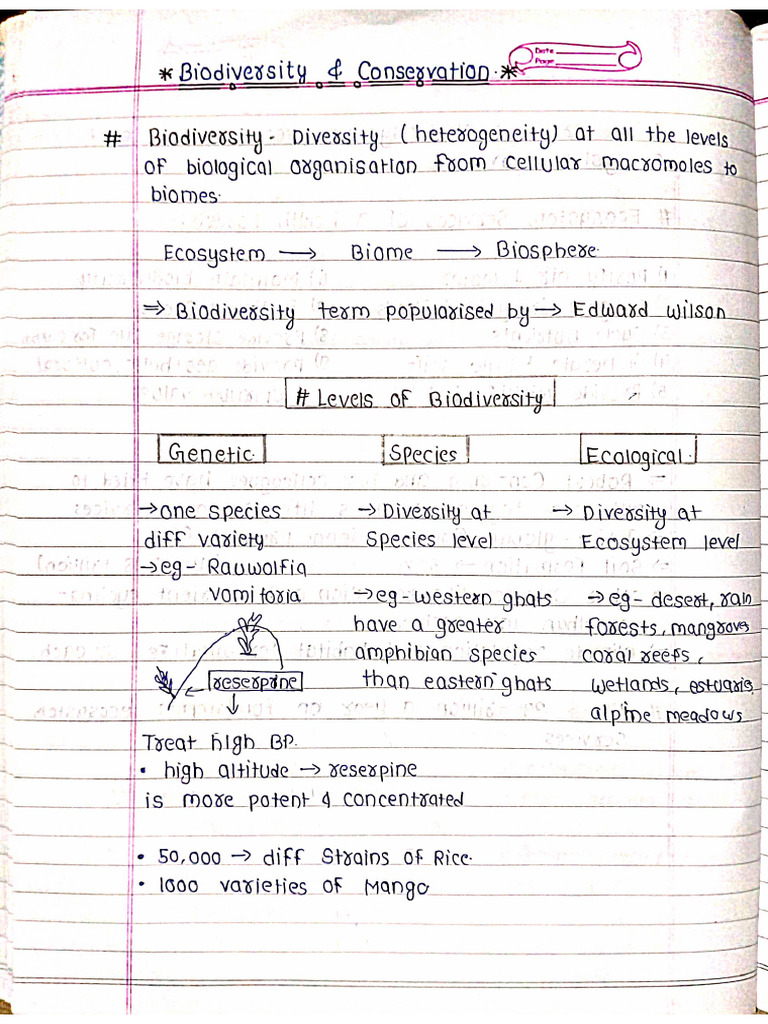 * Biodiversity & Conservation. *
Date
Page
# Biodiversity - Diversity (heterogeneity) at all the levels
of biological organisation from cellular macromoles to
biomes.
Ecosystem → Biome → Biosphere.
⇒ Biodiversity term popularised by → Edward Wilson
# Levels of Biodiversity
Genetic. Species Ecological.
→ One species → Diversity at → Diversity at
diff variety Species level Ecosystem level
→ eg - Rauwolfia
vomitoria → eg - western ghats → eg - desert, rain
have a greater forests, mangrove
amphibian species coral reefs,
reserpine than eastern ghats wetlands, estuaries,
alpine meadows
Treat high BP.
• high altitude → reserpine
is more potent & concentrated
• 50,000 → diff Strains of Rice.
• 1000 varieties of Mango